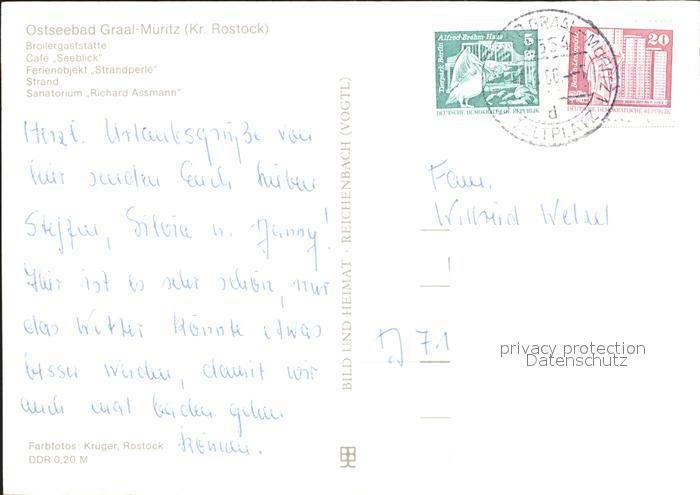 Ostseebad Graal-Müritz (Kr. Rostock)
Broilergaststätte
Café „Seeblick"
Ferienobjekt „Strandperle"
Strand
Sanatorium „Richard Assmann"
Herzl. Urlaubsgrüße von
hier senden Euch lieben
Steffen, Silvia u. Danny!
Hier ist es sehr schön, nur
das Wetter könnte etwas
besser werden, damit wir
auch mal baden gehen
können.
Farbfotos: Krüger, Rostock
DDR 0,20 M
BILD UND HEIMAT · REICHENBACH (VOGTL)
Alfred-Brehm-Haus 5
Tierpark Berlin
DEUTSCHE DEMOKRATISCHE REPUBLIK
20
DEUTSCHE DEMOKRATISCHE REPUBLIK
GRAAL-MÜRITZ 1
d
ZELTPLATZ
Fam.
Wilfried
7.1
privacy protection
Datenschutz